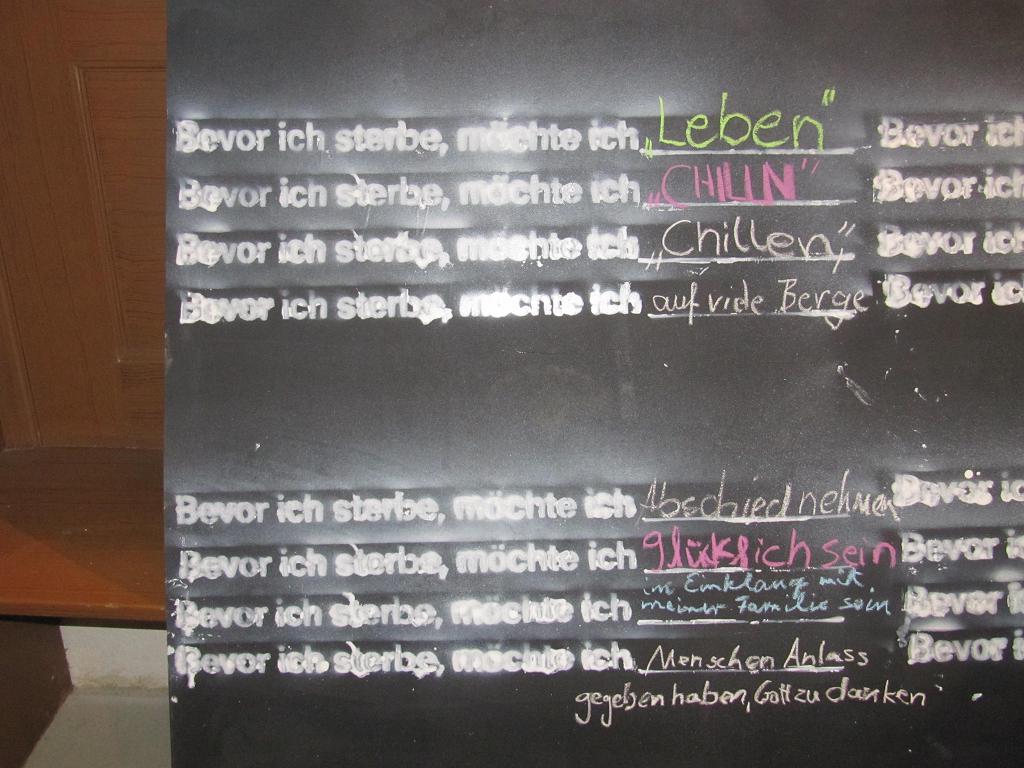 Bevor ich sterbe, möchte ich „Leben" Bevor ich
Bevor ich sterbe, möchte ich „CHILLN" Bevor ich
Bevor ich sterbe, möchte ich „Chillen" Bevor ich
Bevor ich sterbe, möchte ich auf viele Berge Bevor ich
Bevor ich sterbe, möchte ich Abschied nehmen Bevor ic
Bevor ich sterbe, möchte ich glücklich sein Bevor i
in Einklang mit
Bevor ich sterbe, möchte ich meiner Familie sein Bevor i
Bevor ich sterbe, möchte ich Menschen Anlass Bevor i
gegeben haben, Gott zu danken